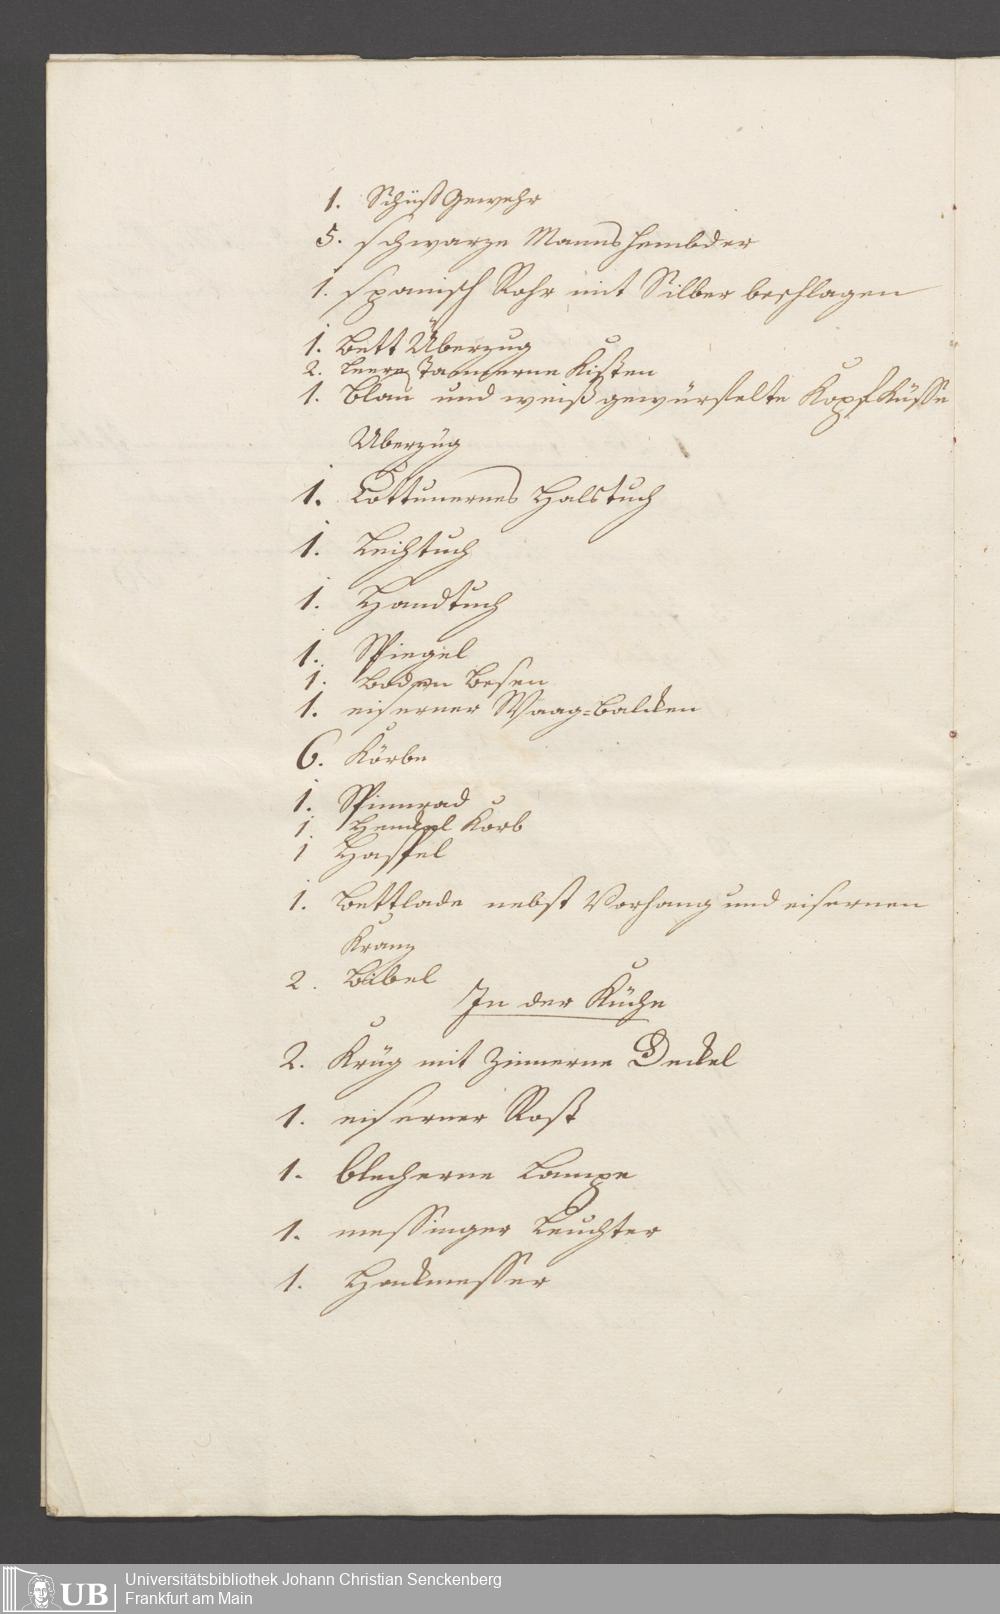 1. Schüß Gewehr
5. schwarze Manns hembder
1. spanisch Rohr mit Silber beschlagen
1. Bett Überzug
2. leere Tannerne Kisten
1. Blau und weiß gewürfelte Kopf Küsse
Uberzüg
1. Cottunernes Halstuch
1. Leichtuch
1. Handtuch
1. Spiegel
1. Boden Besen
1. eiserner Waag=Balcken
6. Körbe
1. Spinnrad
1. Henckel Korb
1 Haspel
1. Bettlade nebst Vorhang und eisernen
Kranz
2. Bibel
In der Küche
2. Krüg mit Zinnerne Deckel
1. eiserner Rost
1. blecherne Lampe
1. messinger Leuchter
1. Hackmesser
UB
Universitätsbibliothek Johann Christian Senckenberg
Frankfurt am Main